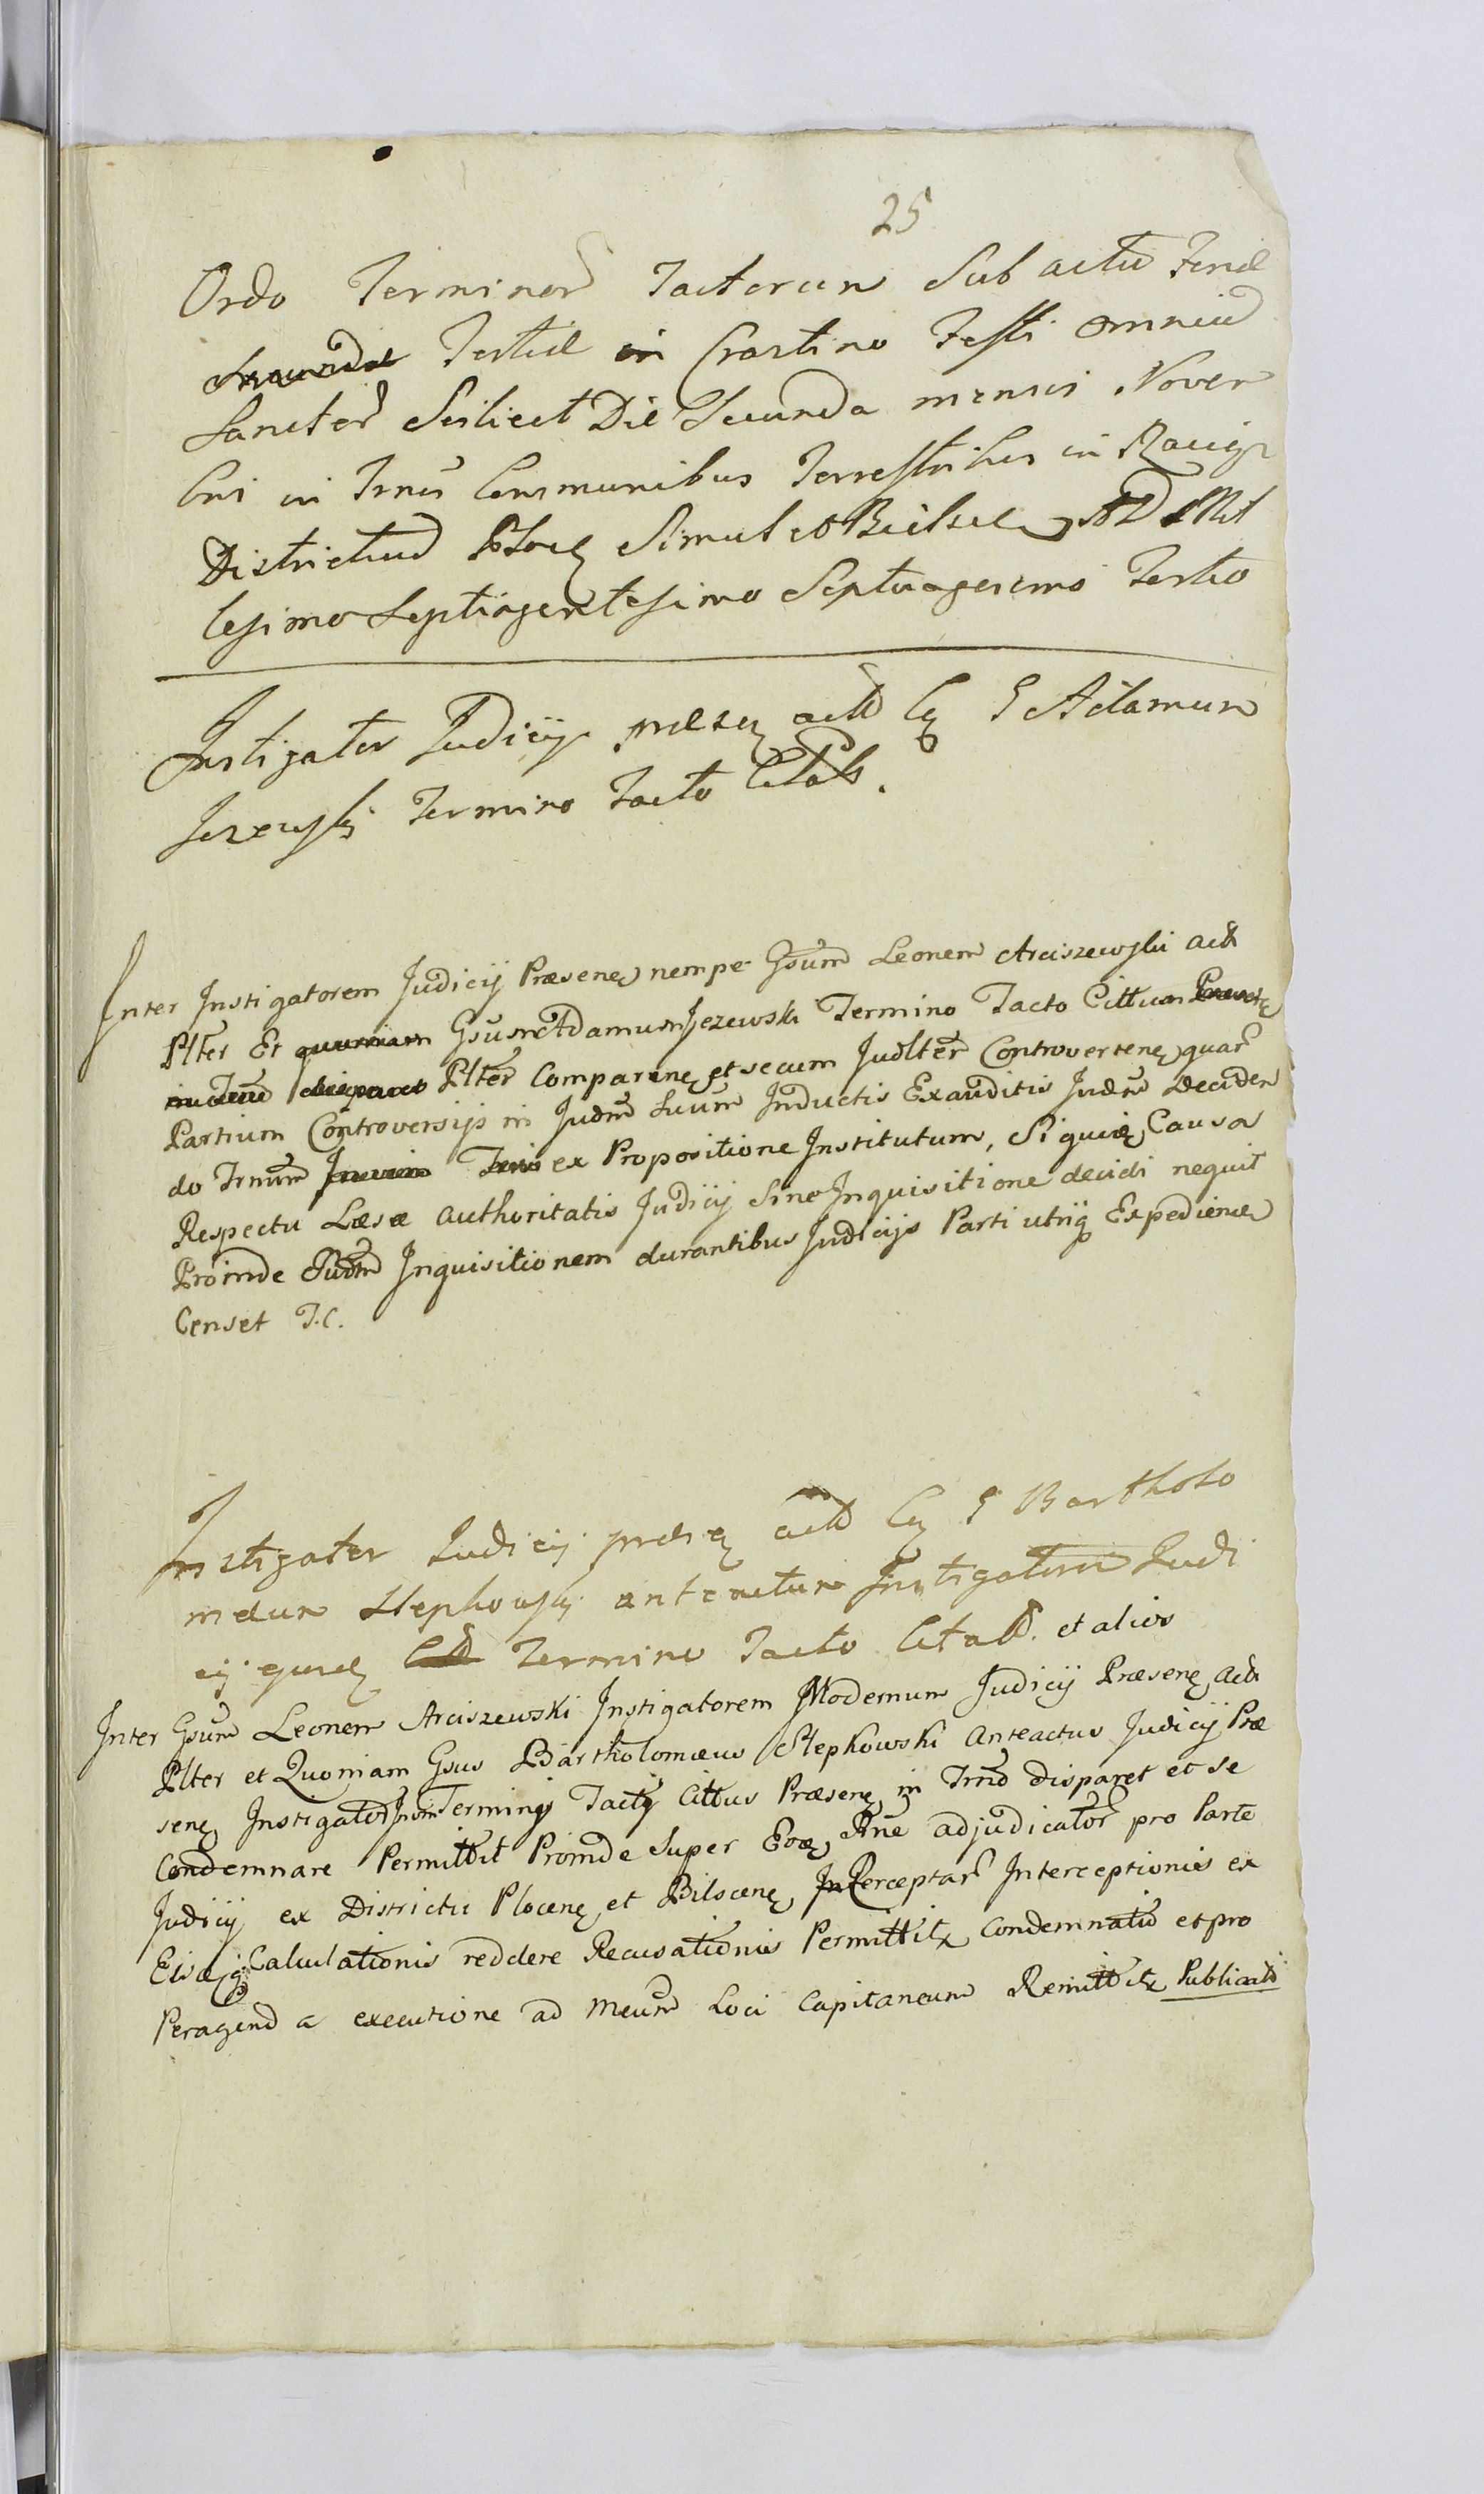 25
Ordo Terminor Tactorum Sub actu Feriæ
Tertiæ in Crastino Festi omniu
Sanctor Scilicet Die Secunda mensis Novem
bris in Trnis Communibus Terrestribus in Raciąz
Districtuu Ploceñ Simul et Bielsceñ AD Mil
lesimo Septingentesimo Septuagesimo Tertio
Instigator Judicij præseñ actt Cq G Adamum
Jezewski Termino Tacto Citats.
Inter Instigatorem Judicij Præsenę nempe Gsum Leonem Arciszewski act
Plter Et quoniam Gsum Adamum Jezewski Termino Tacto Cittum
Plter Comparenę et secum Judlter Controvertenę quar
Partium Controversijs in Judm Suum Inductis Exauditis Judm Deciden
do Trnum ex Propositione Institutum, Siquidę Causa
Respectu Læsæ authoritatis Judicij Sine Inquisitione decidi nequit
Proinde Judm Inquisitionem durantibus Judicijs Parti utriq Expedienę
Censet T.C.
Instigator Judicij præseñ actt Cq G Bartholo
mæum Stepkowski anteactum Instigatorem Judi
cij ejusdę Termino Tacto Citatt. et alios
Inter Gsum Leonem Arciszewski Instigatorem Modernum Judicij Præsenę act
Plter et Quoniam Gsus Bartholomæus Stepkowski Anteactus Judicij Præ
senę Instigator Terminis Tactis Cittus Præsenę in Trno disparet et se
Condemnare Permittit Proinde Super Eoę Pnæ adjudicator pro Parte
Judicij ex Districtu Plocenę et Bilscenę Perceptar Interceptionis ex
Eisq Calculationis reddere Recusationis Permittit condemnatio et pro
Peragend a executione ad Meum Loci Capitaneum Remittit Publicat